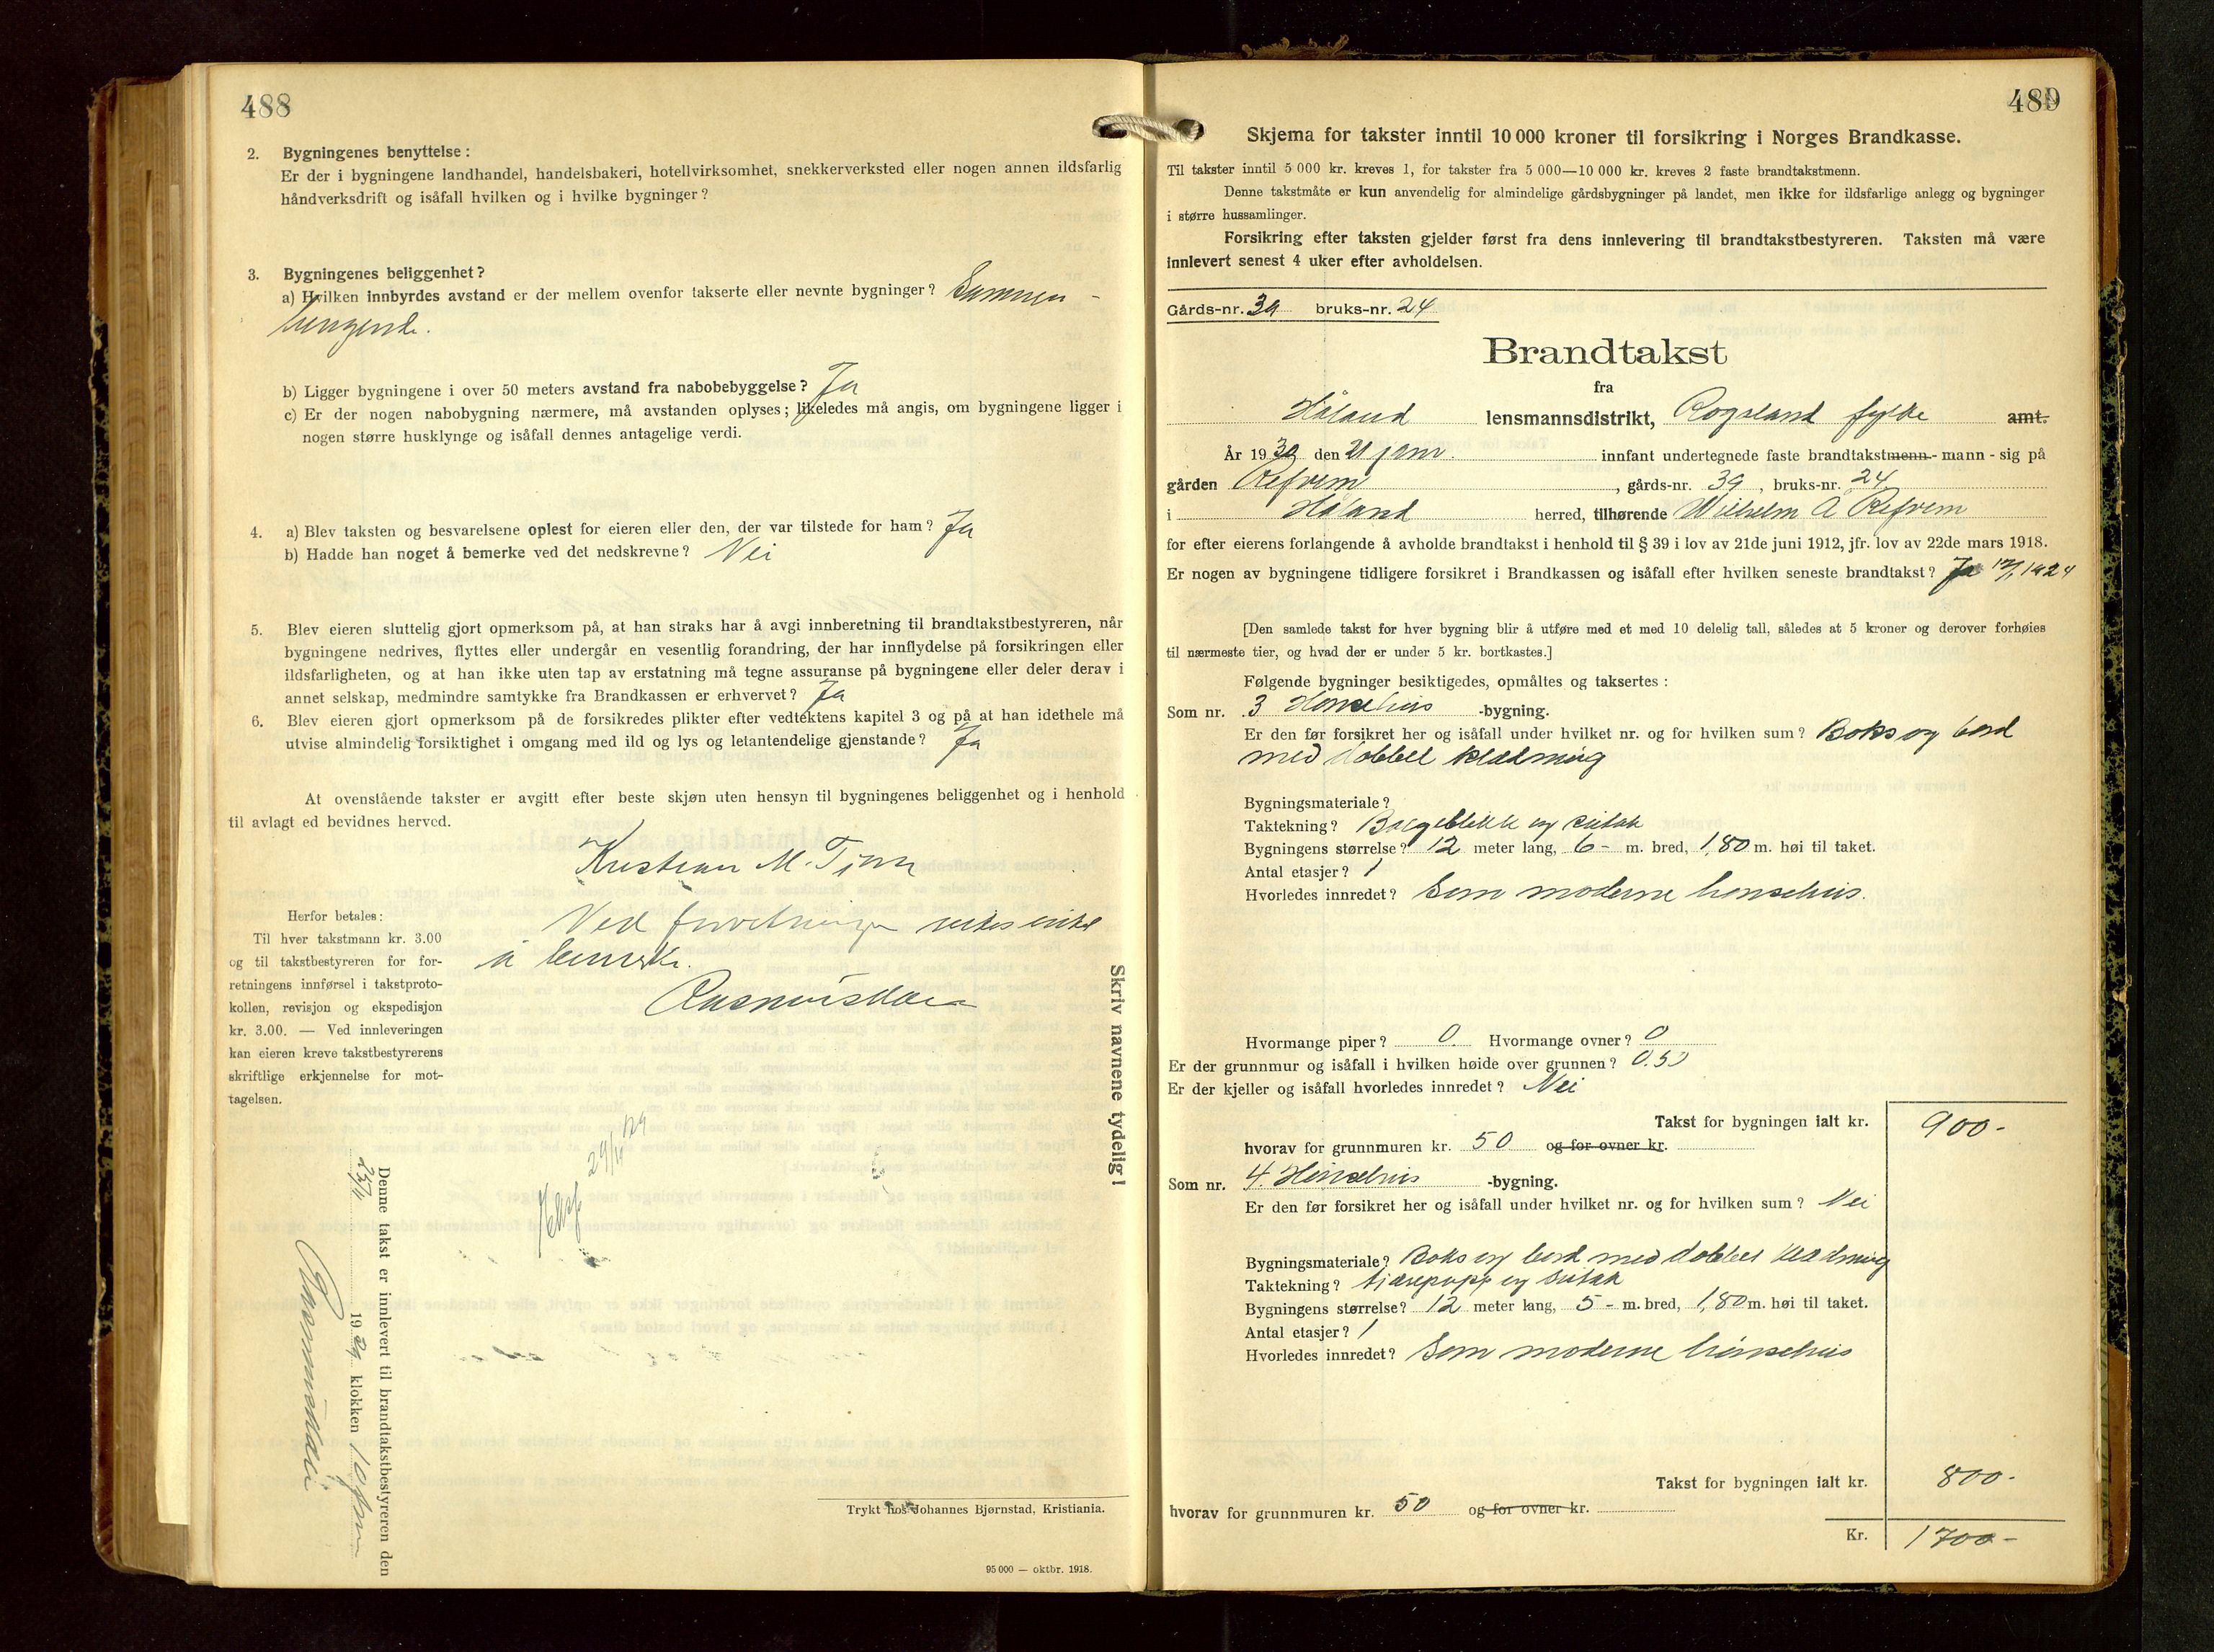 488
2. Bygningenes benyttelse :
Er der i bygningene landhandel, handelsbakeri, hotellvirksomhet, snekkerverksted eller nogen annen ildsfarlig
håndverksdrift og isåfall hvilken og i hvilke bygninger ?
3. Bygningenes beliggenhet ?
a) Hvilken innbyrdes avstand er der mellem ovenfor takserte eller nevnte bygninger ? Sammen-
hengende.
b) Ligger bygningene i over 50 meters avstand fra nabobebyggelse ? Ja
c) Er der nogen nabobygning nærmere, må avstanden oplyses ; likeledes må angis, om bygningene ligger i
nogen større husklynge og isåfall dennes antagelige verdi.
4. a) Blev taksten og besvarelsene oplest for eieren eller den, der var tilstede for ham ? Ja
b) Hadde han noget å bemerke ved det nedskrevne ? Nei
5. Blev eieren sluttelig gjort opmerksom på, at han straks har å avgi innberetning til brandtakstbestyreren, når
bygningene nedrives, flyttes eller undergår en vesentlig forandring, der har innflydelse på forsikringen eller
ildsfarligheten, og at han ikke uten tap av erstatning må tegne assuranse på bygningene eller deler derav i
annet selskap, medmindre samtykke fra Brandkassen er erhvervet ? Ja
6. Blev eieren gjort opmerksom på de forsikredes plikter efter vedtektens kapitel 3 og på at han idethele må
utvise almindelig forsiktighet i omgang med ild og lys og letantendelige gjenstande ? Ja
At ovenstående takster er avgitt efter beste skjøn uten hensyn til bygningenes beliggenhet og i henhold
til avlagt ed bevidnes herved.
Kristian M. Tjora
Ved forretningen intet
å bemerke.
Herfor betales :
Til hver takstmann kr. 3.00
og til takstbestyreren for for-
retningens innførsel i takstproto-
kollen, revisjon og ekspedisjon
kr. 3.00. — Ved innleveringen
kan eieren kreve takstbestyrerens
skriftlige erkjennelse for mot-
tagelsen.
Skriv navnene tydelig !
Denne takst er innlevert til brandtakstbestyreren den
19 klokken 10
Trykt hos Johannes Bjørnstad, Kristiania.
95 000 — oktbr. 1918.
489
Skjema for takster inntil 10 000 kroner til forsikring i Norges Brandkasse.
Til takster inntil 5 000 kr. kreves 1, for takster fra 5 000—10 000 kr. kreves 2 faste brandtakstmenn.
Denne takstmåte er kun anvendelig for almindelige gårdsbygninger på landet, men ikke for ildsfarlige anlegg og bygninger
i større hussamlinger.
Forsikring efter taksten gjelder først fra dens innlevering til brandtakstbestyreren. Taksten må være
innlevert senest 4 uker efter avholdelsen.
Gårds-nr. 39 bruks-nr. 24
Brandtakst
fra
Håland lensmannsdistrikt, Rogaland fylke amt.
År 19 den 21 jan. innfant undertegnede faste brandtakstmenn - mann - sig på
gården Refvem, gårds-nr. 39, bruks-nr. 24
i Håland herred, tilhørende Wilhelm A Refvem
for efter eierens forlangende å avholde brandtakst i henhold til § 39 i lov av 21de juni 1912, jfr. lov av 22de mars 1918.
Er nogen av bygningene tidligere forsikret i Brandkassen og isåfall efter hvilken seneste brandtakst ? Ja 1924
[Den samlede takst for hver bygning blir å utføre med et med 10 delelig tall, således at 5 kroner og derover forhøies
til nærmeste tier, og hvad der er under 5 kr. bortkastes.]
Følgende bygninger besiktigedes, opmåltes og taksertes :
Som nr. 3 Hønsehus -bygning.
Er den før forsikret her og isåfall under hvilket nr. og for hvilken sum ? Boks og bord
med dobbel klædning
Bygningsmateriale ?
Taktekning ? Bølgeblekk og sutak
Bygningens størrelse ? 12 meter lang, 6 - m. bred, 1,80 m. høi til taket.
Antal etasjer ? 1
Hvorledes innredet ? Som moderne hønsehus.
Hvormange piper ? 0. Hvormange ovner ? 0
Er der grunnmur og isåfall i hvilken høide over grunnen ? 0.50
Er der kjeller og isåfall hvorledes innredet ? Nei
Takst for bygningen ialt kr. 900-
hvorav for grunnmuren kr. 50 og for ovner kr.
Som nr. 4. Hønsehus -bygning.
Er den før forsikret her og isåfall under hvilket nr. og for hvilken sum ? Nei
Bygningsmateriale ? Boks og bord med dobbel klædning
Taktekning ? tjærepapp og sutak
Bygningens størrelse ? 12 meter lang, 5 - m. bred, 1,80 m. høi til taket.
Antal etasjer ? 1
Hvorledes innredet ? Som moderne hønsehus
Takst for bygningen ialt kr. 800-
hvorav for grunnmuren kr. 50 og for ovner kr.
Kr. 1700-